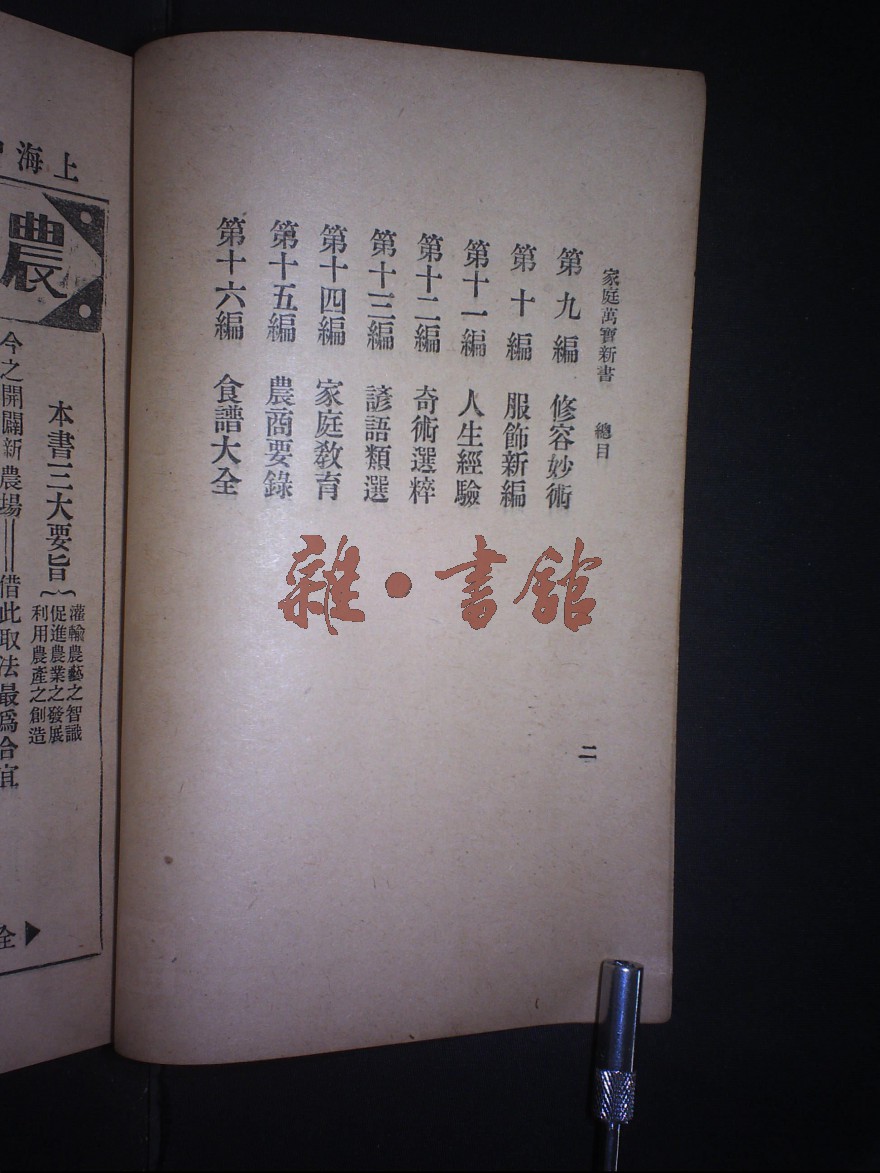 家庭萬寶新書　總目
第九編　修容妙術
第十編　服飾新編
第十一編　人生經驗
第十二編　奇術選粹
第十三編　諺語類選
第十四編　家庭教育
第十五編　農商要錄
第十六編　食譜大全
二
雜·書館
上海
農
本書三大要旨
灌輸農藝之智識
促進農業之發展
利用農產之創造
今之開闢新農場——借此取法最爲合宜
全